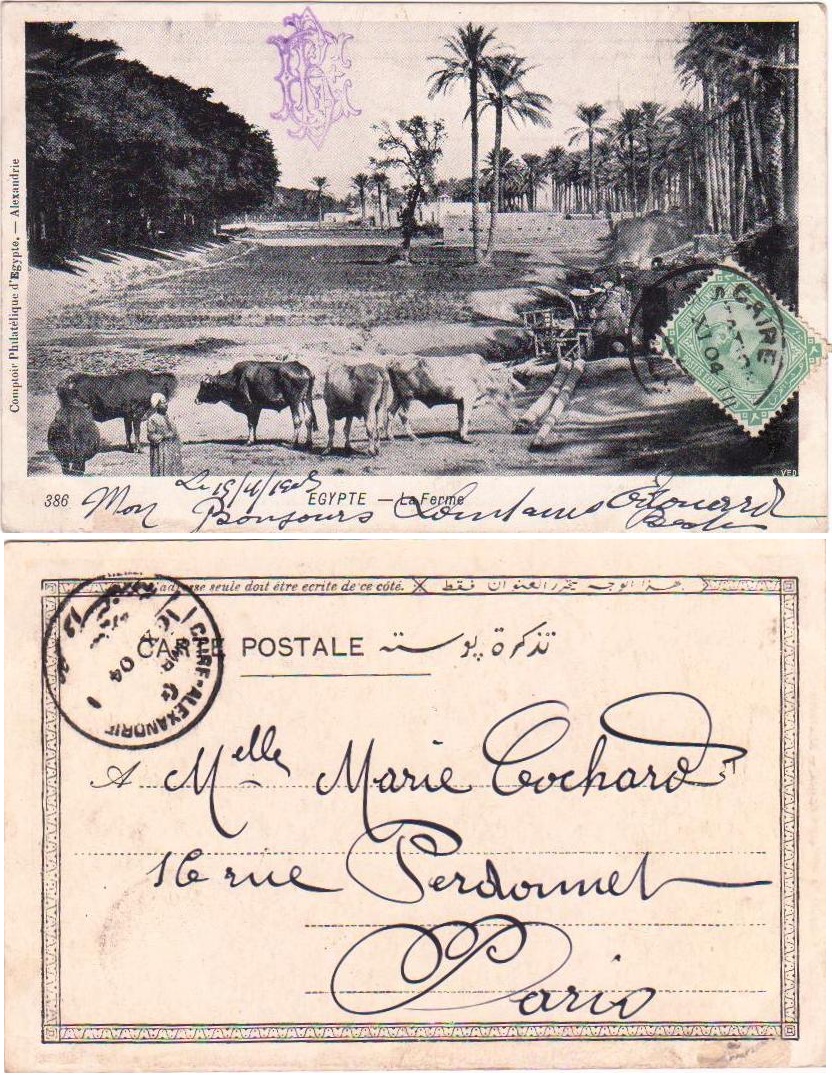 Comptoir Philatélique d'Egypte. — Alexandrie
CAIRE
XI 04
VED
386
EGYPTE — La Ferme
Mon Bonjours Lointains Edouard
adresse seule doit être ecrite de ce côté.
هذا الوجه يحرر العنوان فقط
CARTE POSTALE تذكرة پوسته
CAIRE-ALEXANDRIE
XI 04
A Melle Marie Cochard
16 rue Perdonnet
Paris